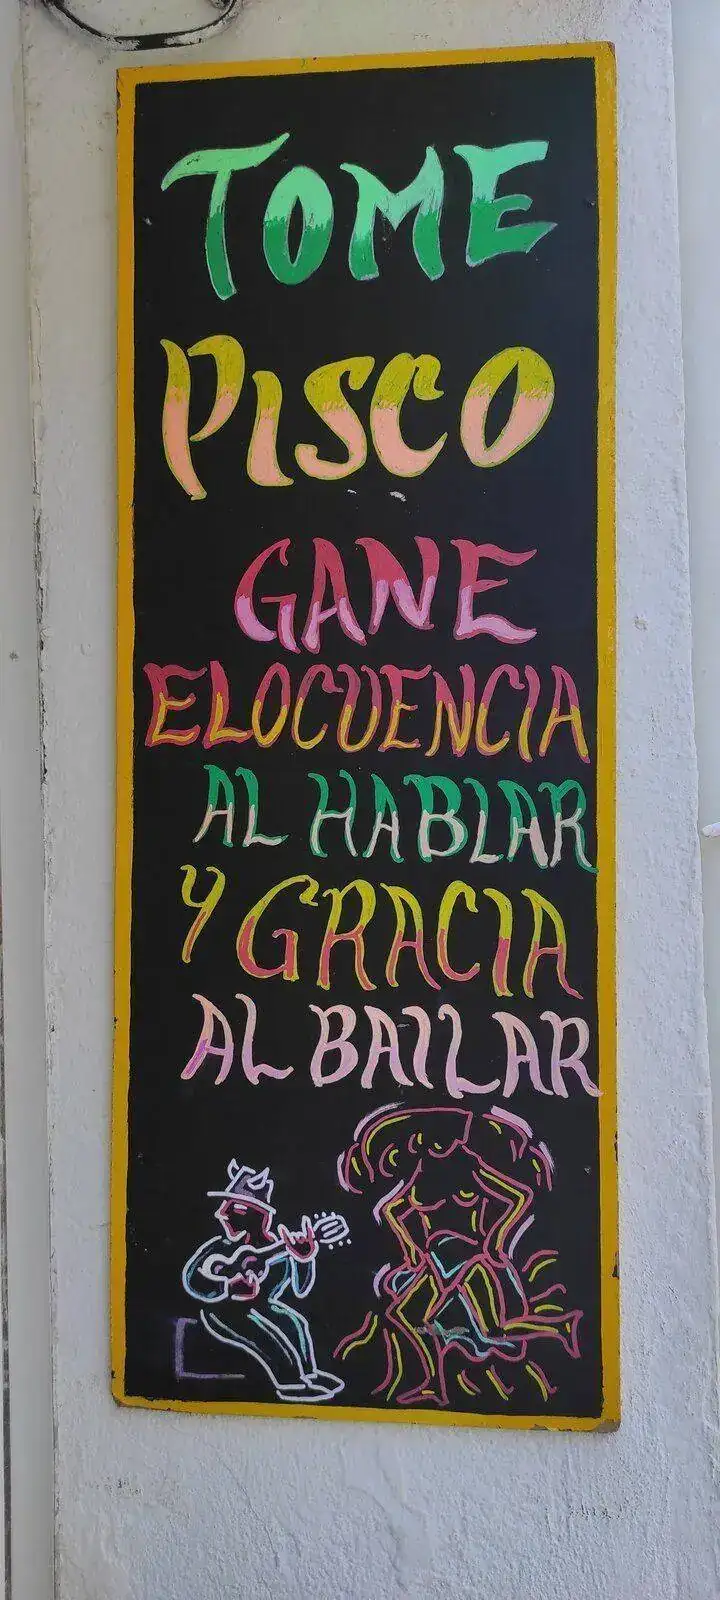 TOME
PISCO
GANE
ELOCUENCIA
AL HABLAR
Y GRACIA
AL BAILAR